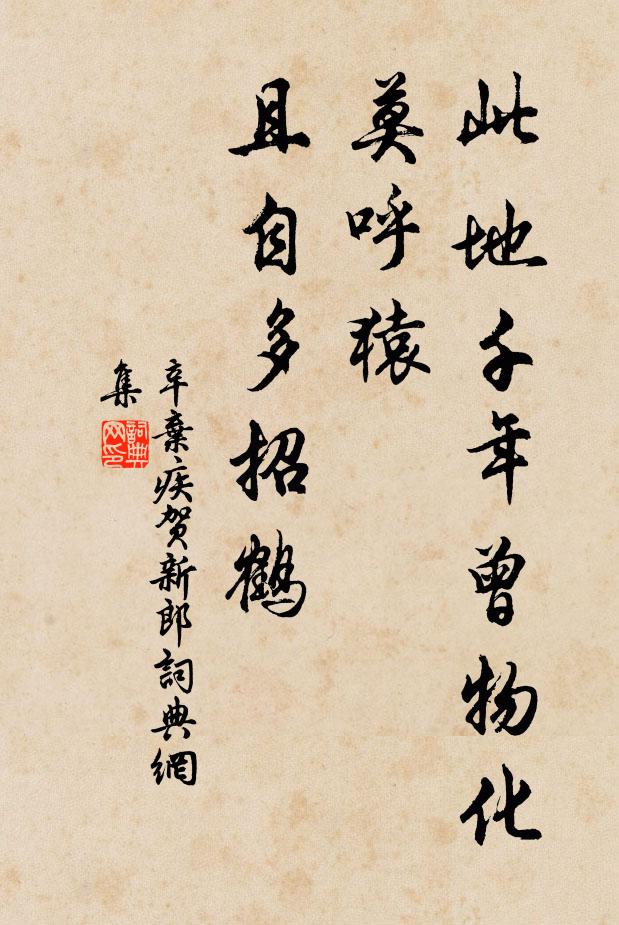 此地千年曾物化
莫呼猿
且自多招鶴
辛棄疾賀新郎詞典網
集
詞典
网印